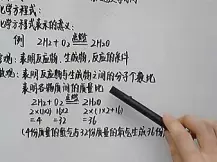 化学方程式：
化学方程式表示的意义：
例 2H₂+O₂ 点燃 2H₂O
观：表明反应物、生成物、反应的条件
微观：表明反应物与生成物之间的分子个数比
表明各物质间的质量比
2H₂+O₂ 点燃 2H₂O
2×(1×2) 16×2 2×(1×2+16)
=4 =32 =36
(4份质量的氢气与32份质量的氧气生成36份